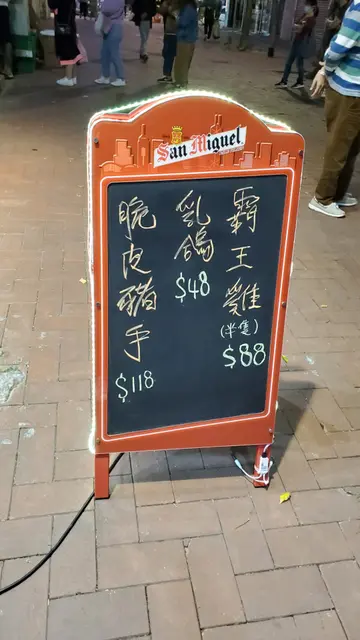 San Miguel
霸王雞
(半隻)
$88
乳鴿
$48
脆皮豬手
$118